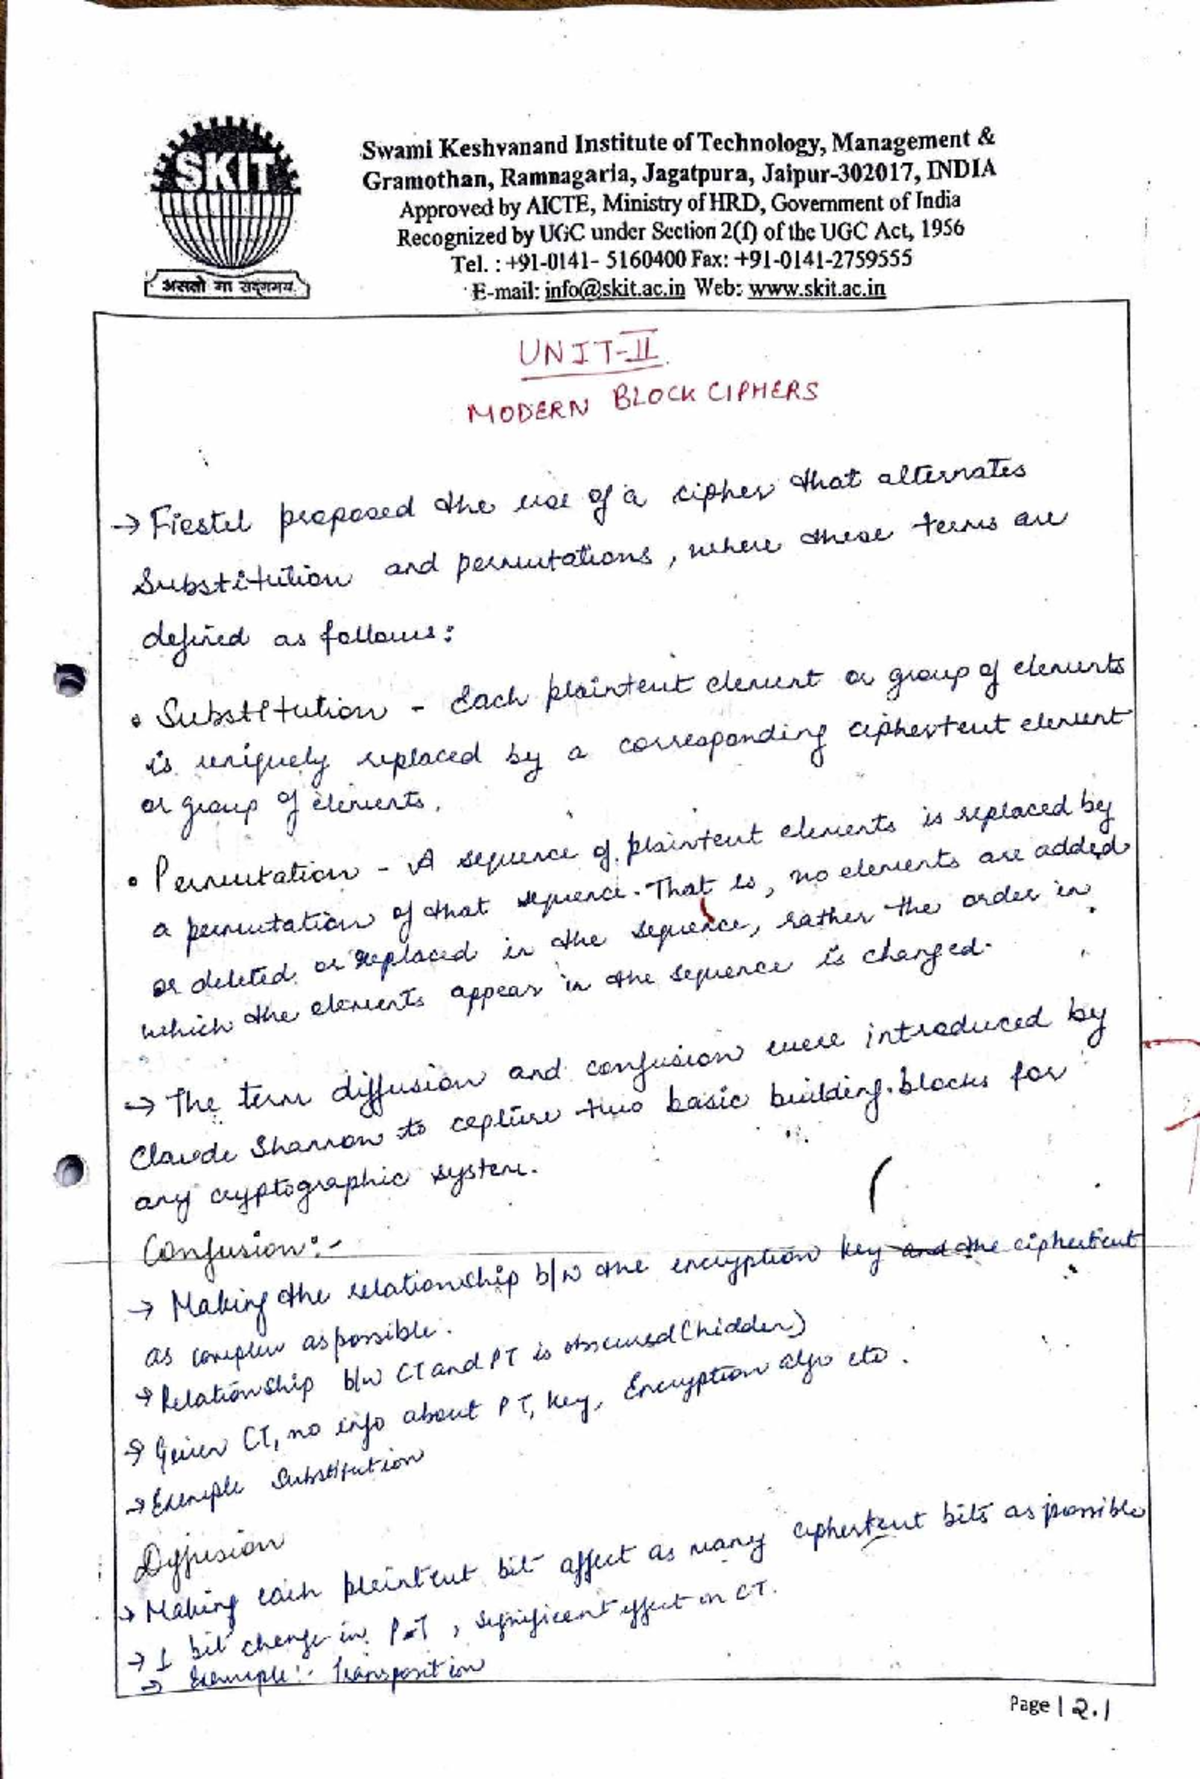 SKIT
असतो मा सद्गमय
Swami Keshvanand Institute of Technology, Management &
Gramothan, Ramnagaria, Jagatpura, Jaipur-302017, INDIA
Approved by AICTE, Ministry of HRD, Government of India
Recognized by UGC under Section 2(f) of the UGC Act, 1956
Tel. : +91-0141- 5160400 Fax: +91-0141-2759555
E-mail: info@skit.ac.in Web: www.skit.ac.in
UNIT-II
MODERN BLOCK CIPHERS
→ Fiestel proposed the use of a cipher that alternates
Substitution and permutations, where these terms are
defined as follows:
• Substitution - Each plaintext element or group of elements
is uniquely replaced by a corresponding ciphertext element
or group of elements.
• Permutation - A sequence of plaintext elements is replaced by
a permutation of that sequence. That is, no elements are added
or deleted or replaced in the sequence, rather the order in
which the elements appear in the sequence is changed.
→ The term diffusion and confusion were introduced by
Claude Shannon to capture two basic building blocks for
any cryptographic system.
Confusion:-
→ Making the relationship b/w the encryption key and the ciphertext
as complex as possible.
→ Relationship b/w CT and PT is obscured (hidden)
→ Given CT, no info about PT, key, Encryption algo etc.
→ Example Substitution
Diffusion
→ Making each plaintext bit affect as many ciphertext bits as possible
→ 1 bit change in P.T, significant effect on CT.
→ Example:- Transposition
Page | 2.1